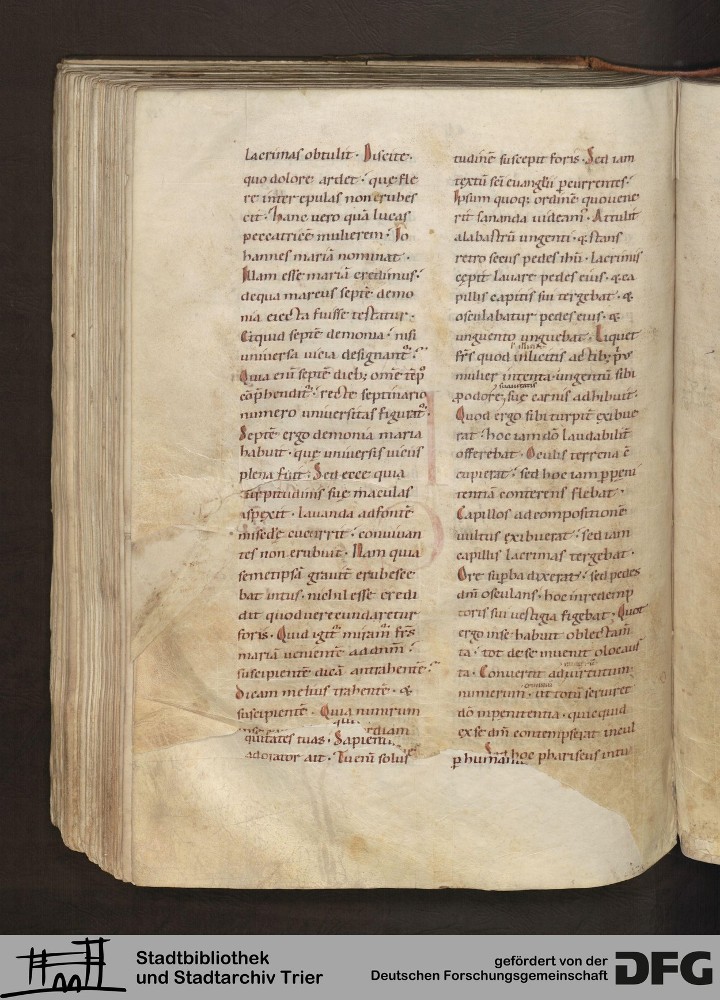 lacrimas obtulit · Discite ·
quo dolore ardet · que fle
re inter epulas non erubes
cit · Hanc vero quā lucas
peccatricē mulierem · Io
hannes mariā nominat ·
Illam esse mariā credimus ·
de qua marcus septē demo
nia eiecta fuisse testatur ·
Et quid septē demonia · nisi
universa vicia designant᷑ ·
Quia eni septē dieb; om̄e tēp᷒
cōp̄hendit᷑ · recte septinario
numero universitas figurat᷑ ·
Septē ergo demonia maria
habuit · que universis viciis
plena fuit · Sed ecce quia
turpitudinis sue maculas
asp̄exit · lavanda ad fontē
mis̄dē cucurrit · convivan
tes non erubuit · Nam quia
semetipsā gravit̄ erubesce
bat intus · nichil esse credi
dit quod verecundaretur
foris · Quid igit᷑ miram᷑ frs̄
mariā venientē · ad dnm̄ ·
suscipientē dicā an trahentē ·
Dicam melius trahentē · &
suscipientē · Quia nimirum
quitates tuas · Sapienti
adorator ait · Tu eni solus
tudinē suscepit foris · Sed iam
textū sc̄i evanglii p̄currentes ·
Ipsum quoq; ordinē quo vene
rit sananda videam᷑ · Attulit
alabastrū ungenti · & stans
retro secus pedes ihu · lacrimis
cepit lavare pedes eius · & ca
pillis capitis sui tergebat · &
osculabatur pedes eius · &
unguento unguebat · Liquet
frs̄ quod illicitis actib; p̄v᷒
mulier intenta · ungentū sibi
p̄ odore sue carnis adhibuit ·
Quod ergo sibi turpit̄ exibue
rat · hoc iam dō laudabilit̄
offerebat · Oculis terrena c̄
cupierat · sed hoc iam p̄ peni
tentiā conterens flebat ·
Capillos ad compositionē
vultus exibuerat · sed iam
capillis lacrimas tergebat ·
Ore sup̄ba dixerat · sed pedes
dn̄i osculans · hoc in redemp
toris sui vestigia figebat · Quot
ergo in se habuit oblectam̄
ta · tot de se invenit olocaus
ta · Convertit ad virtutum
numerum · ut totū serviret
dō in penitentia · quicquid
ex se dn̄m contempserat in cul
Sed hoc phariseus intu